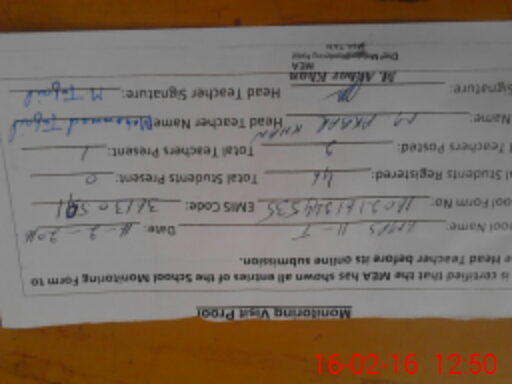 Monitoring Visit Proof
is certified that the MEA has shown all entries of the School Monitoring Form to
e Head Teacher before its online submission.
ool Name: GMPS 11-T Date:
ool Form No: EMIS Code:
l Students Registered: 46 Total Students Present: 0
l Teachers Posted: 2 Total Teachers Present: 1
Name: M AKBAR KHAN Head Teacher Name: Mohammad Tufail
Signature: Head Teacher Signature: M Tufail
M. Akbar Khan
MEA
16-02-16 12:50